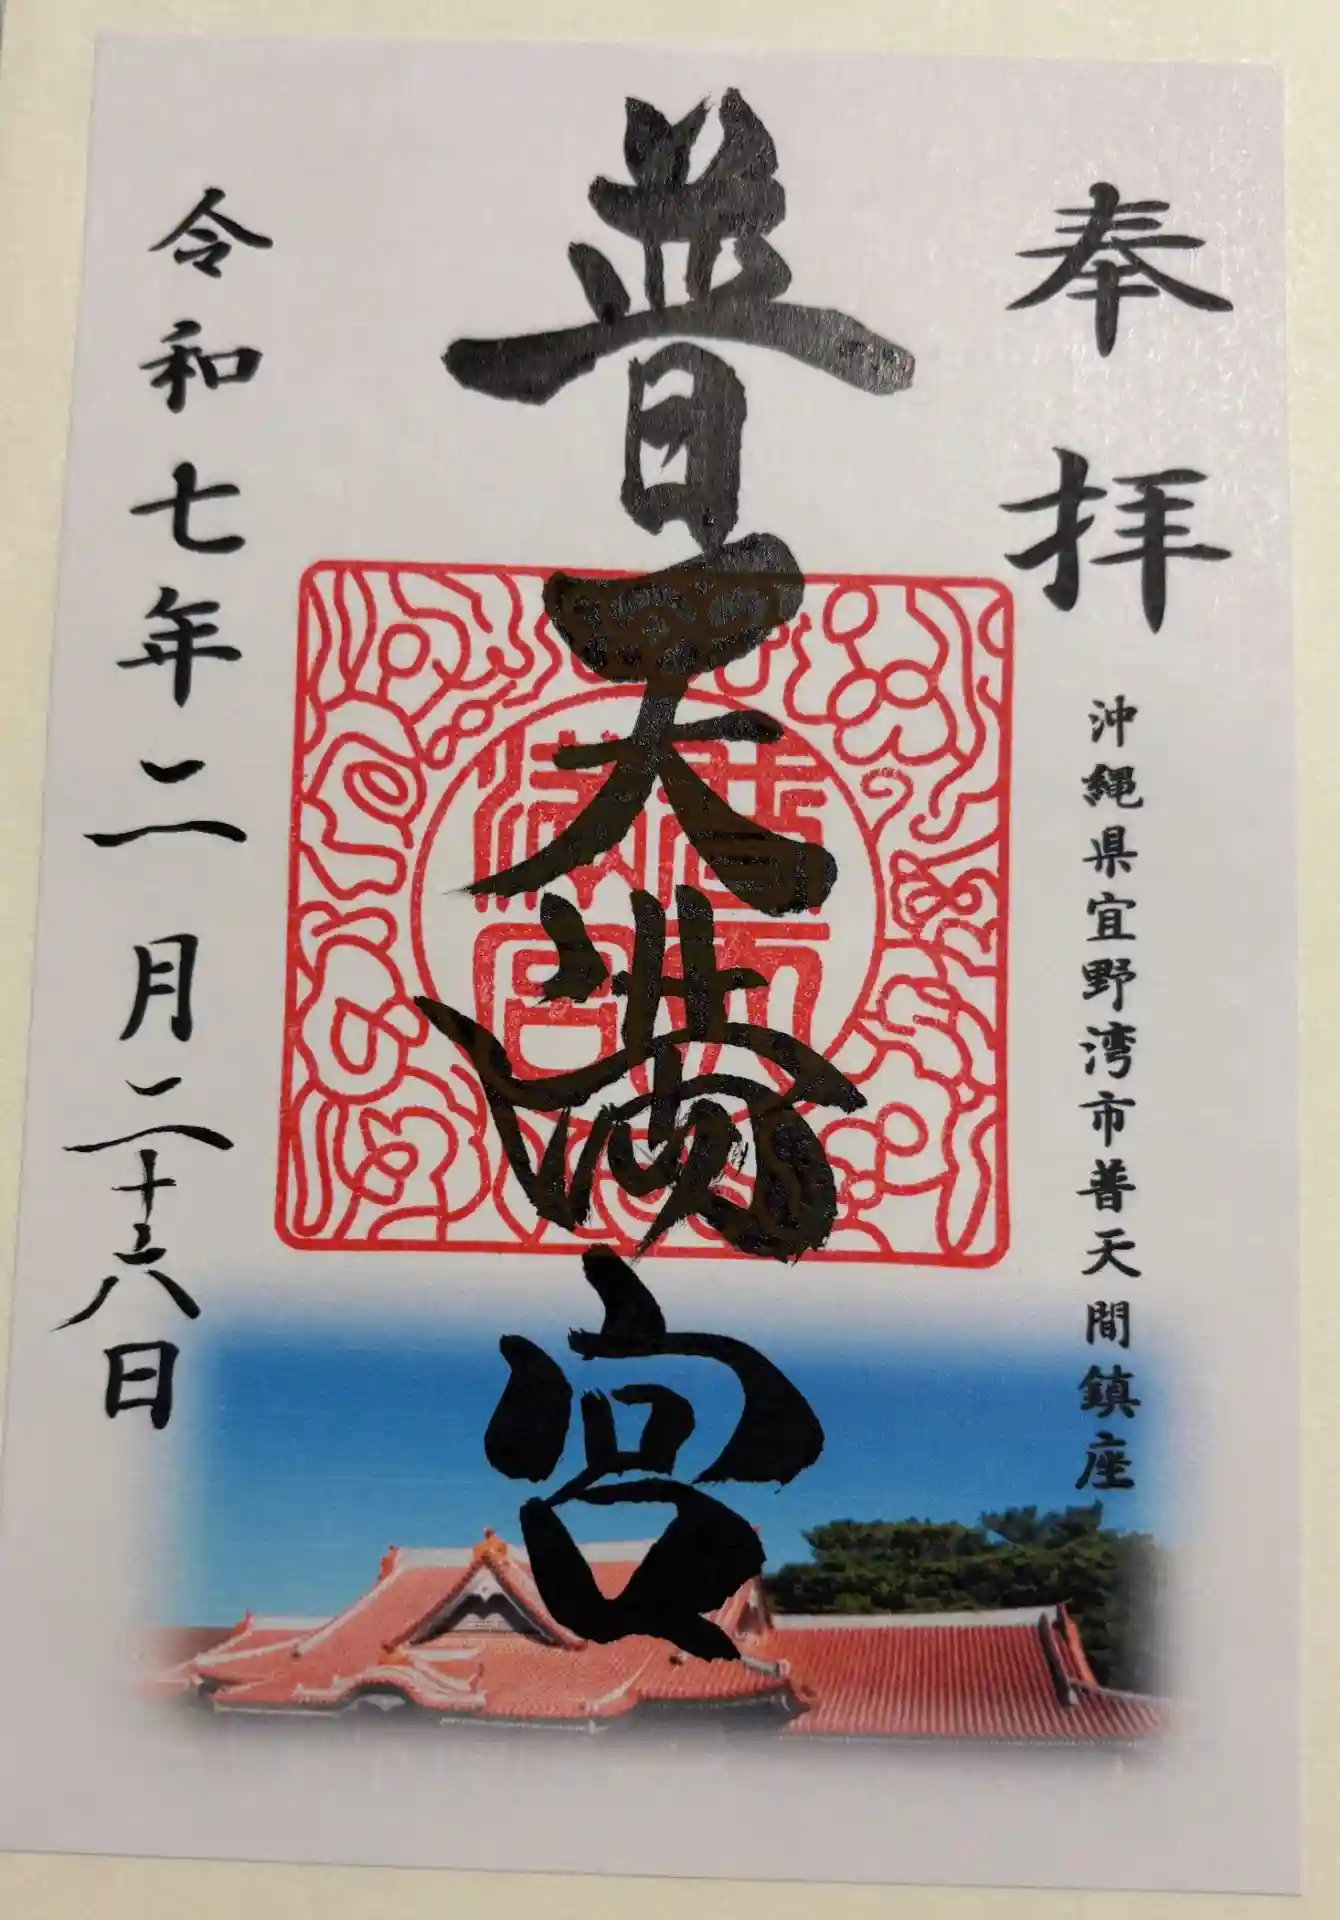 奉拝
沖縄県宜野湾市普天間鎮座
普天満宮
普天
満宮
令和七年二月二十六日